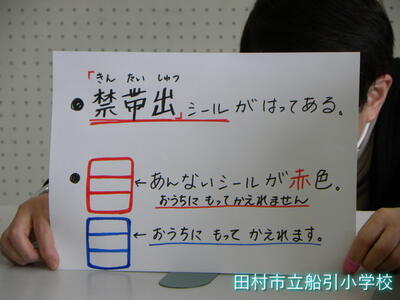 「きんたいしゅつ
●禁帯出」シールがはってある。
●←あんないシールが赤色。
おうちにもってかえれません
←おうちにもってかえれます。
田村市立船引小学校